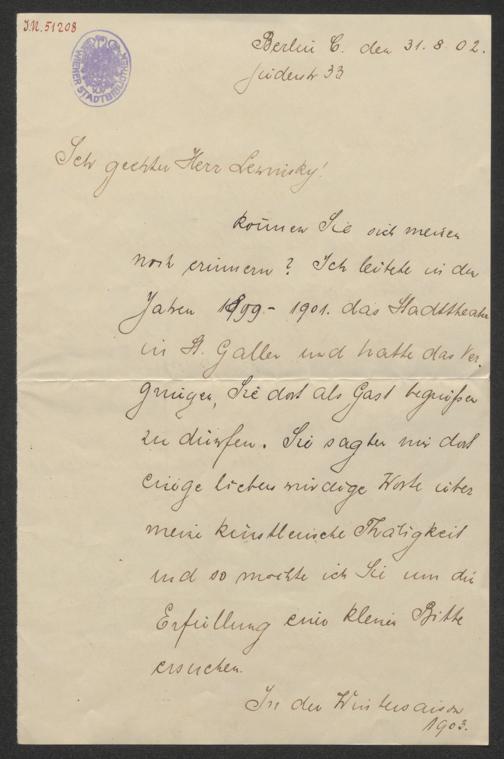 J.N. 51208
WIENER STADTBIBLIOTHEK
Berlin C. den 31.8.02.
Jüdenstr 33
Sehr geehrter Herr Lewinsky!
Können Sie sich meiner
noch erinnern? Ich leitete in den
Jahren 1899 - 1901. das Stadttheater
in St. Gallen und hatte das Ver-
gnügen, Sie dort als Gast begrüßen
zu dürfen. Sie sagten mir dort
einige liebenswürdige Worte über
meine künstlerische Thätigkeit
und so möchte ich Sie um die
Erfüllung einer kleinen Bitte
ersuchen.
In der Wintersaison
1903.